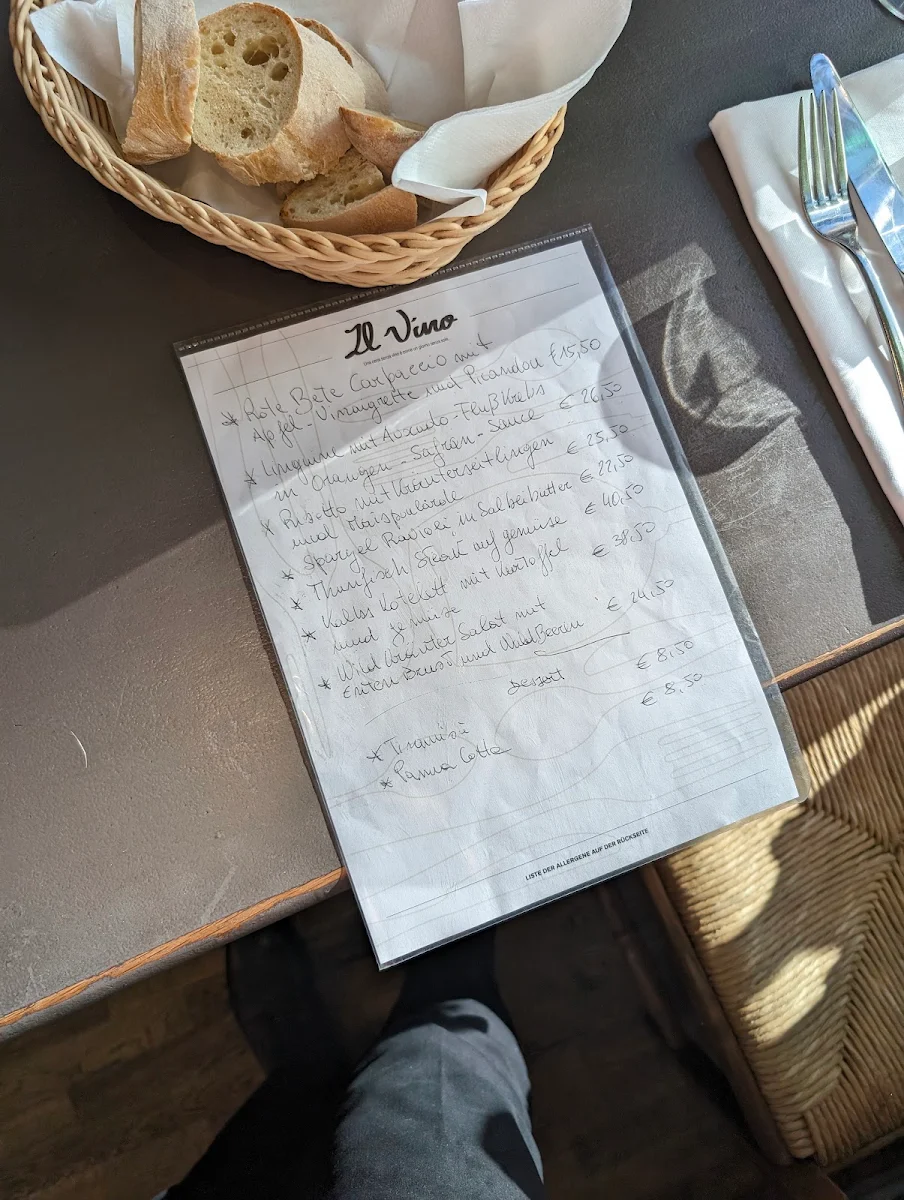 Il Vino
* Rote Bete Carpaccio mit
Apfel-Vinaigrette und Picandou €15,50
* Linguine mit Avocado-Flußkrebs
in Orangen-Safran-Sauce € 26,50
* Risotto mit Kräuterseitlingen € 25,50
und
* Spargel Ravioli in Salbeibutter € 22,50
* Thunfisch Steak auf gemüse € 40,50
* Kalbs Kotelett mit Kartoffel € 38,50
und gemüse
* Wild Kräuter Salat mit
Enten Brust und Wild Beeren € 24,50
Dessert
* Tiramisù € 8,50
* Panna Cotta € 8,50
LISTE DER ALLERGENE AUF DER RÜCKSEITE